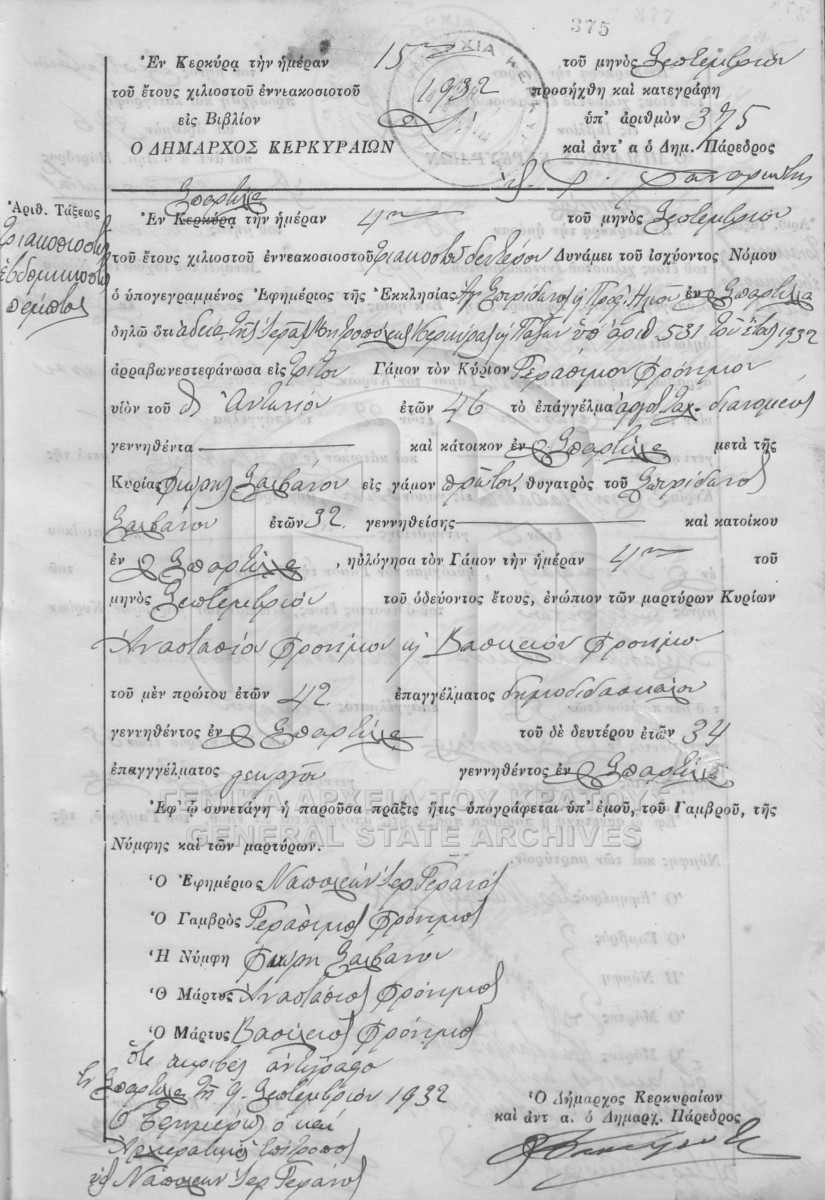 375
Ἐν Κερκύρᾳ τὴν ἡμέραν 15ην τοῦ μηνὸς Σεπτεμβρίου
τοῦ ἔτους χιλιοστοῦ ἐννεακοσιοτοῦ 1932 προσήχθη καὶ κατεγράφη
εἰς Βιβλίον ὑπ' ἀριθμὸν 375
Ὁ ΔΗΜΑΡΧΟΣ ΚΕΡΚΥΡΑΙΩΝ καὶ ἀντ' α ὁ Δημ. Πάρεδρος
Ἀριθ. Τάξεως
Τριακοσιοστὴ
ἑβδομηκοστὴ
πέμπτη
Σπαρτύλᾳ
Ἐν Κερκύρᾳ τὴν ἡμέραν 4ην τοῦ μηνὸς Σεπτεμβρίου
τοῦ ἔτους χιλιοστοῦ ἐννεακοσιοστοῦ τριακοστοῦ δευτέρου Δυνάμει τοῦ ἰσχύοντος Νόμου
ὁ ὑπογεγραμμένος Ἐφημέριος τῆς Ἐκκλησίας Ἁγ. Σπυρίδωνος ἐν Σπαρτύλᾳ
δηλῶ ὅτι ἀδείᾳ τῆς Ἱερᾶς Μητροπόλεως Κερκύρας ϗ Παξῶν ὑπ' ἀριθ. 531 τοῦ ἔτους 1932
ἀρραβωνεστεφάνωσα εἰς τρίτον Γάμον τὸν Κύριον Γεράσιμον Φρόνιμον
υἱὸν τοῦ Ἀντωνίου ἐτῶν 46 τὸ ἐπάγγελμα ἀγροτ. ταχ. διανομεὺς
γεννηθέντα καὶ κάτοικον ἐν Σπαρτύλᾳ μετὰ τῆς
Κυρίας Σαρβάνου εἰς γάμον πρῶτον, θυγατρὸς τοῦ Σπυρίδωνος
Σαρβάνου ἐτῶν 32. γεννηθείσης καὶ κατοίκου
ἐν Σπαρτύλᾳ, ηὐλόγησα τὸν Γάμον τὴν ἡμέραν 4ην τοῦ
μηνὸς Σεπτεμβρίου τοῦ ὁδεύοντος ἔτους, ἐνώπιον τῶν μαρτύρων Κυρίων
Ἀναστασίου Φρονίμου ϗ Βασιλείου Φρονίμου
τοῦ μὲν πρώτου ἐτῶν 42. ἐπαγγέλματος δημοδιδασκάλου
γεννηθέντος ἐν Σπαρτύλᾳ τοῦ δὲ δευτέρου ἐτῶν 34
ἐπαγγγέλματος γεωργοῦ γεννηθέντος ἐν Σπαρτύλᾳ
ΓΕΝΙΚΑ ΑΡΧΕΙΑ ΤΟΥ ΚΡΑΤΟΥΣ
Ἐφ' ᾧ συνετάγη ἡ παροῦσα πρᾶξις ἥτις ὑπογράφεται ὑπ' ἐμοῦ, τοῦ Γαμβροῦ, τῆς
GENERAL STATE ARCHIVES
Νύμφης καὶ τῶν μαρτύρων.
Ὁ Ἐφημέριος Ναπολέων Ἱερ.
Ὁ Γαμβρὸς Γεράσιμος Φρόνιμος
Ἡ Νύμφη Σαρβάνου
Ὁ Μάρτυς Ἀναστάσιος Φρόνιμος
Ὁ Μάρτυς Βασίλειος Φρόνιμος
Ὅτι ἀκριβὲς ἀντίγραφο
Ἐν Σπαρτύλᾳ τῇ 9 Σεπτεμβρίου 1932
Ὁ Ἐφημέριος ὁ καὶ
Ἀρχιερατικὸς Ἐπίτροπος
Ναπολέων Ἱερ.
Ὁ Δήμαρχος Κερκυραίων
καὶ ἀντ α. ὁ Δημαρχ. Πάρεδρος